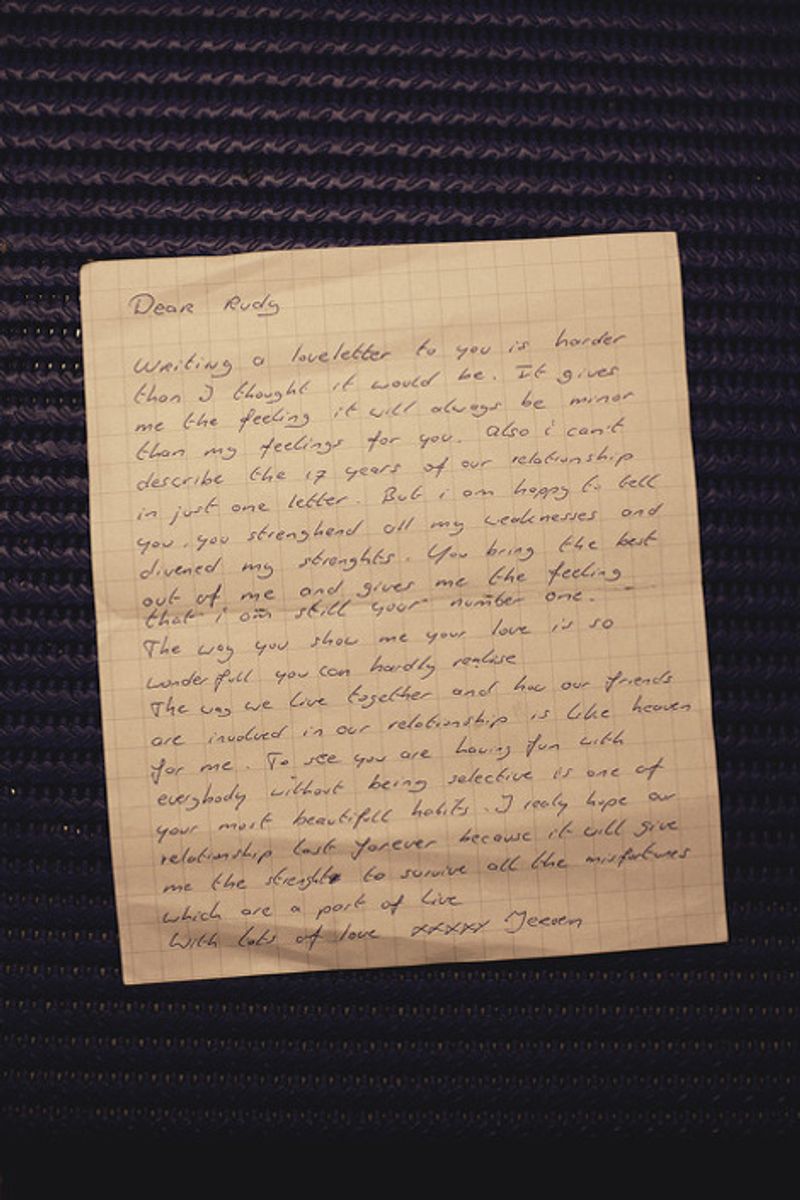 Dear Rudy
Writing a loveletter to you is harder
than I thought it would be. It gives
me the feeling it will always be minor
than my feelings for you. Also i can't
describe the 17 years of our relationship
in just one letter. But i am happy to tell
you. you strenghend all my weaknesses and
divened my strenghts. You bring the best
out of me and gives me the feeling
that i am still your number one.
The way you show me your love is so
wonderfull you can hardly realise
The way we live together and how our friends
are involved in our relationship is like heaven
for me. To see you are having fun with
everybody without being selective is one of
your most beautifull habits. I realy hope our
relationship last forever because it will give
me the strenght to survive all the misfortunes
which are a part of live
With lots of love xxxxx